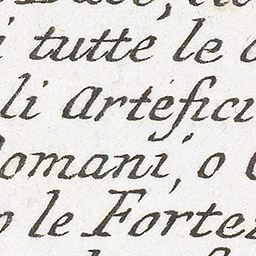 i tutte le
li Artefici
Romani, o
o le Fortez